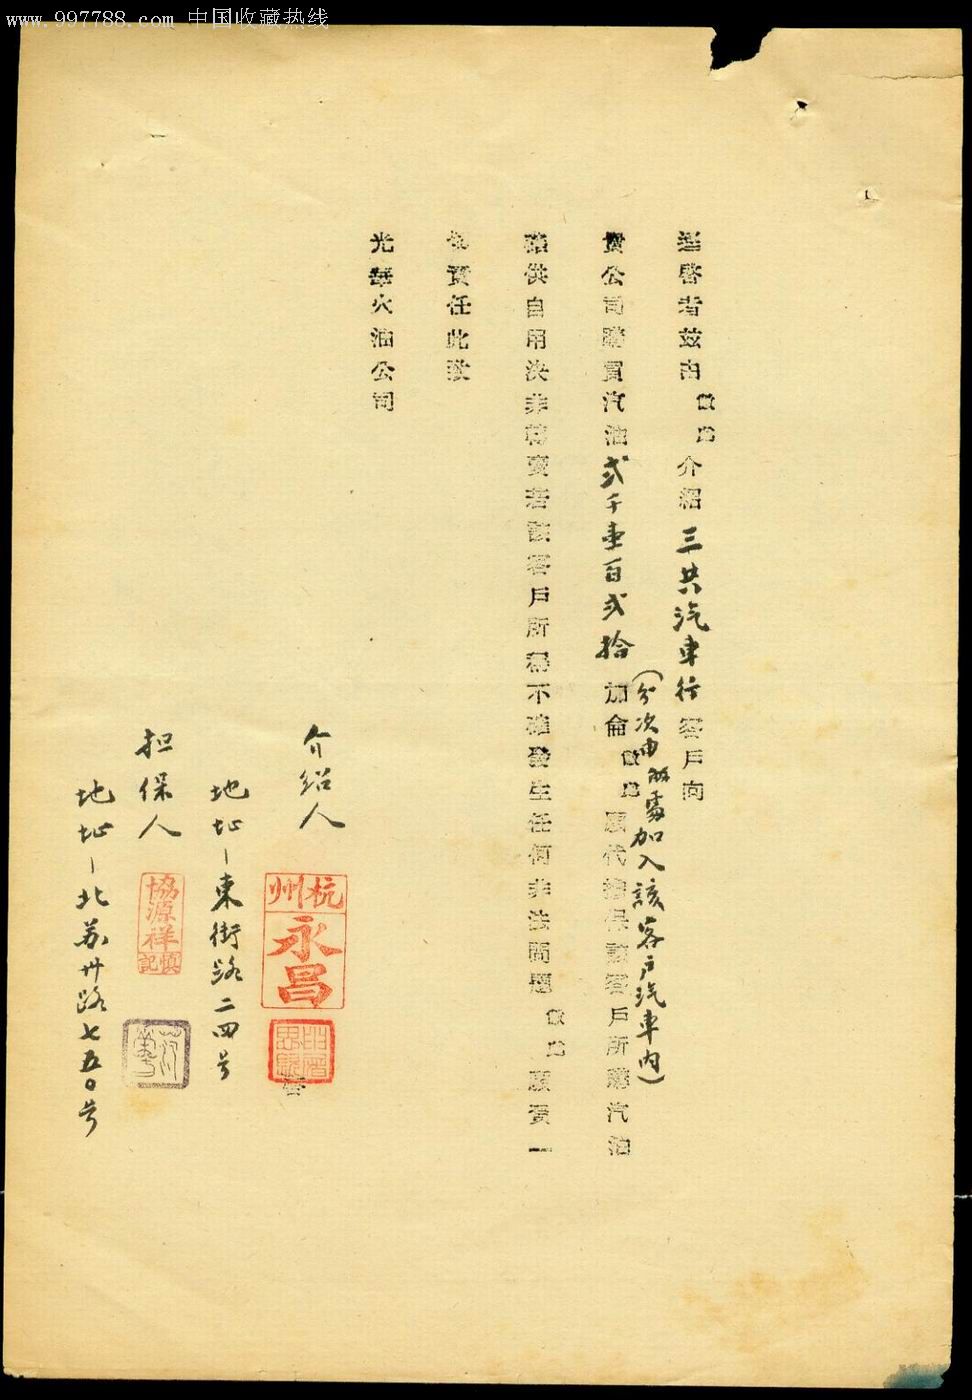 www.997788.com 中国收藏热线
逕啓者玆由敝處介紹三共汽車行客戶向
貴公司購買汽油弍千壹百弍拾加侖敝處願代擔保該客戶所購汽油
(分次由敝處加入該客戶汽車內)
確供自用決非轉賣若該客戶所稱不確發生任何非法問題敝處願負一
切責任此致
光華火油公司
介紹人
杭州
永昌
地址-東街路二四号
担保人
協源祥
慎記
地址-北苏州路七五〇号